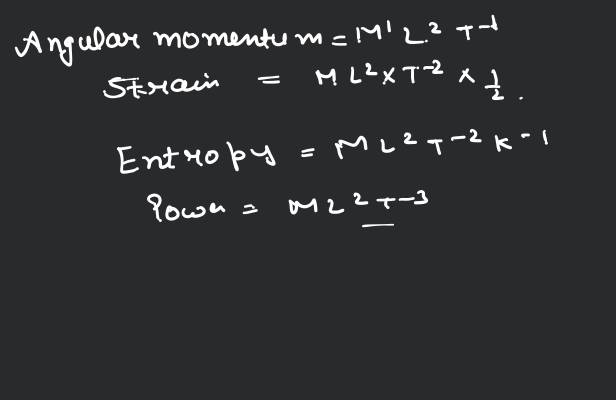 Angular momentum = M¹ L² T⁻¹
Strain = M L² × T⁻² × 1/2.
Entropy = M L² T⁻² K⁻¹
Power = M L² T⁻³